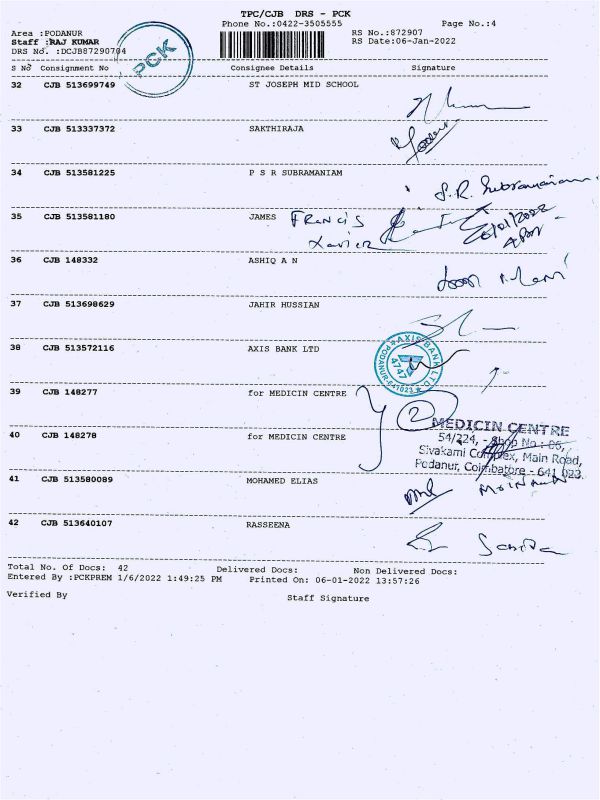 TPC/CJB DRS - PCK
Phone No.:0422-3505555 Page No.:4
Area :PODANUR RS No.:872907
Staff :RAJ KUMAR RS Date:06-Jan-2022
DRS No. :DCJB87290784
PCK
S No Consignment No Consignee Details Signature
32 CJB 513699749 ST JOSEPH MID SCHOOL
33 CJB 513337372 SAKTHIRAJA
34 CJB 513581225 P S R SUBRAMANIAM
S.R. Subramaniam
35 CJB 513581180 JAMES FRANCIS
Xavier
36 CJB 148332 ASHIQ A N
37 CJB 513698629 JAHIR HUSSIAN
38 CJB 513572116 AXIS BANK LTD
AXIS BANK LTD
4747
PODANUR-641023
39 CJB 148277 for MEDICIN CENTRE
2
MEDICIN CENTRE
40 CJB 148278 for MEDICIN CENTRE
54/224, - Shop No : 06,
Sivakami Complex, Main Road,
Podanur, Coimbatore - 641 023
41 CJB 513580089 MOHAMED ELIAS
42 CJB 513640107 RASSEENA
Total No. of Docs: 42 Delivered Docs: Non Delivered Docs:
Entered By :PCKPREM 1/6/2022 1:49:25 PM Printed On: 06-01-2022 13:57:26
Verified By Staff Signature